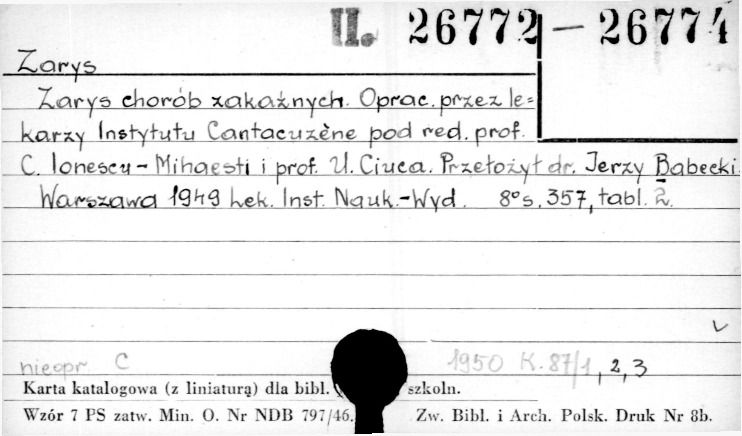 II. 26772 — 26774
Zarys
Zarys chorób zakaźnych. Oprac. przez le=
karzy Instytutu Cantacuzène pod red. prof.
C. Ionescu-Mihaesti i prof. U. Ciuca. Przełożył dr. Jerzy Babecki.
Warszawa 1949 Lek. Inst. Nauk.-Wyd. 8° s. 357, tabl. 2.
nieopr C 1950 K. 87/1, 2, 3
Karta katalogowa (z liniaturą) dla bibl. szkoln.
Wzór 7 PS zatw. Min. O. Nr NDB 797/46. Zw. Bibl. i Arch. Polsk. Druk Nr 8b.